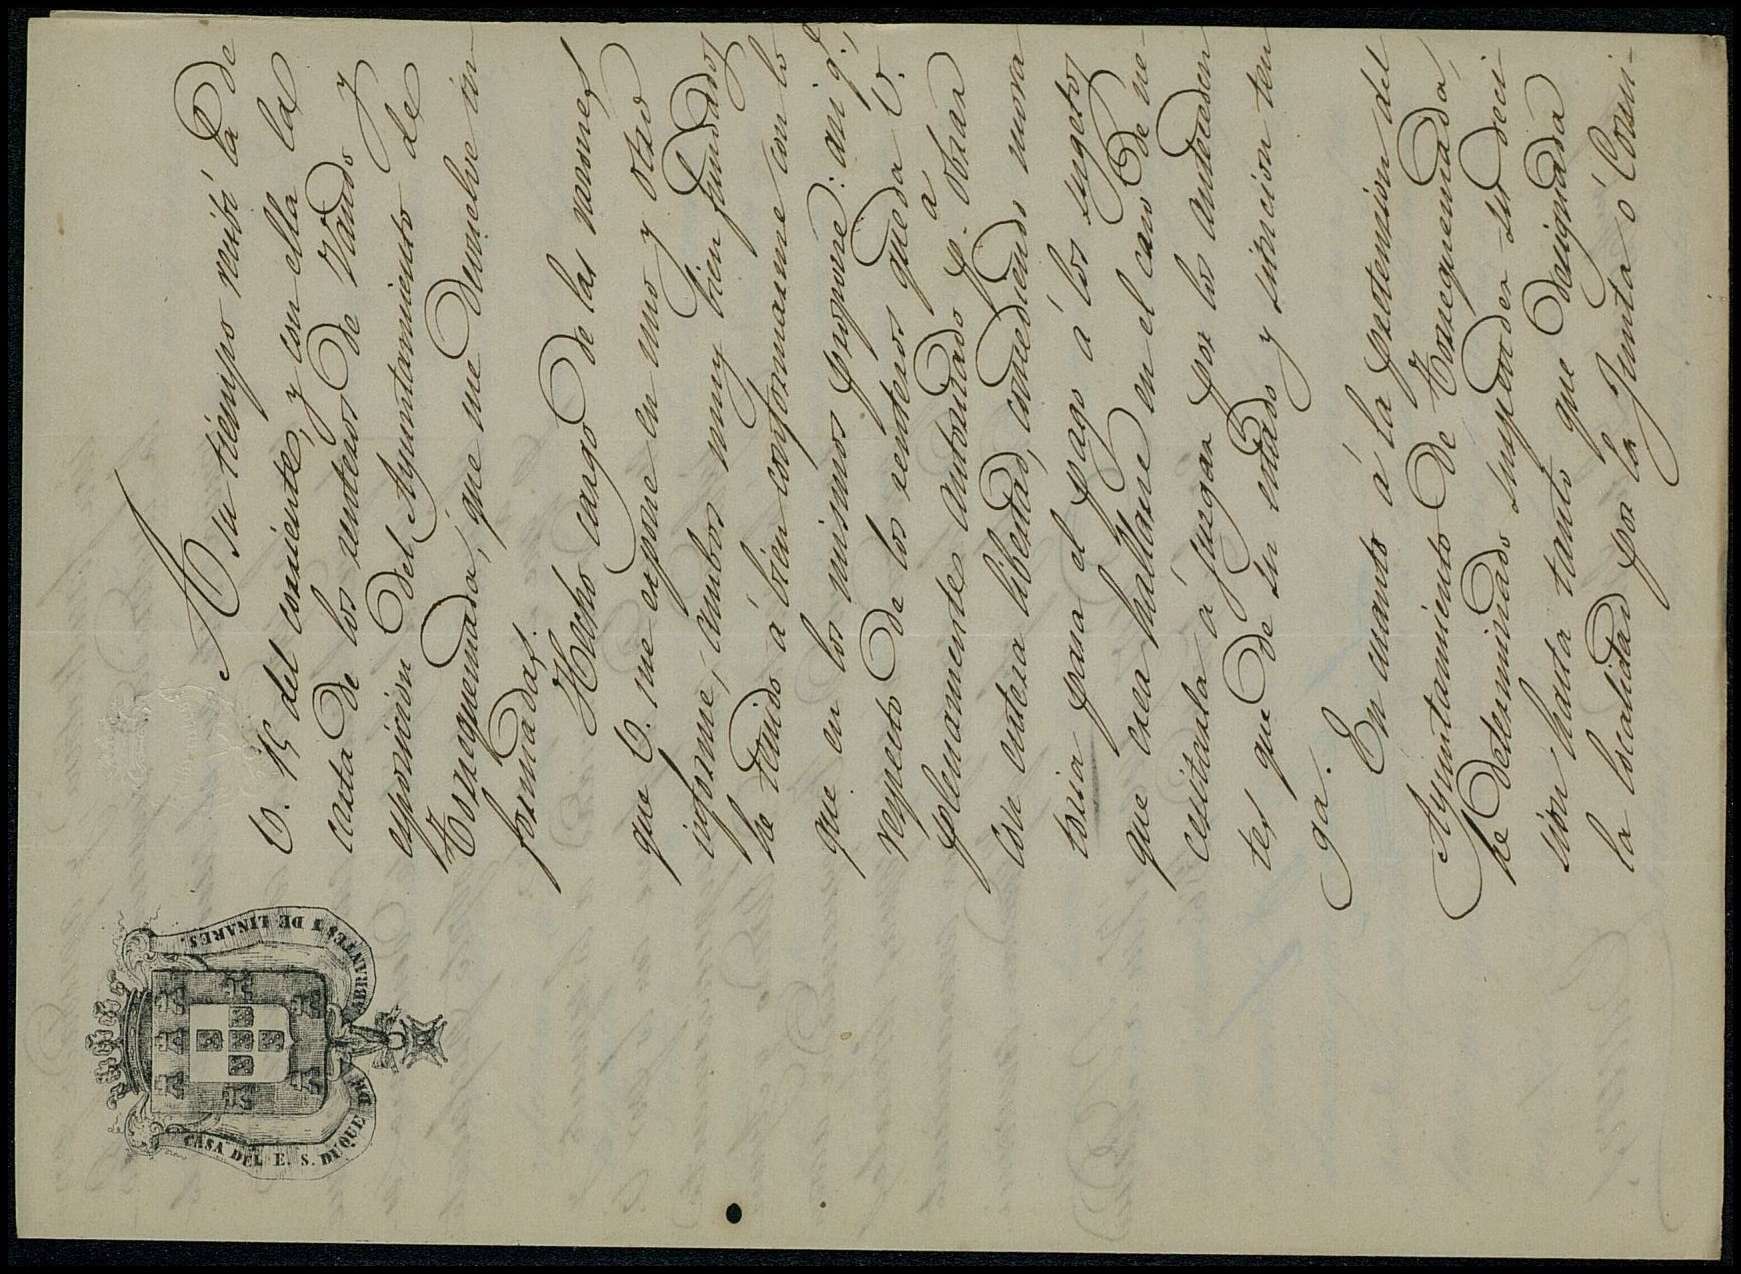 CASA DEL E. S. DUQUE DE ABRANTES Y DE LINARES.
A su tiempo recibí la de
V. 15 del corriente, y con ella la
carta de los renteros de Vando y
esposicion del Ayuntamiento de
Torrequemada, que me devuelve in-
formadas.
Hecho cargo de las razones
que V. me expone en uno y otro
informe, ambos muy bien fundados
he tenido á bien conformarme con lo
que en los mismos propone: asi q.e,
respecto de los renteros queda V.
plenamente autorizado p.a obrar
con entera libertad, concediendo mora
toria para el pago á los sugetos
que crea hallarse en el caso de ne-
cesitarla á juzgar por los anteceden
tes que de su estado y situacion ten
ga.
En cuanto á la pretension del
Ayuntamiento de Torrequemada,
he determinado suspender su deci
sion hasta tanto que designada
la localidad por la Junta ó Comi-